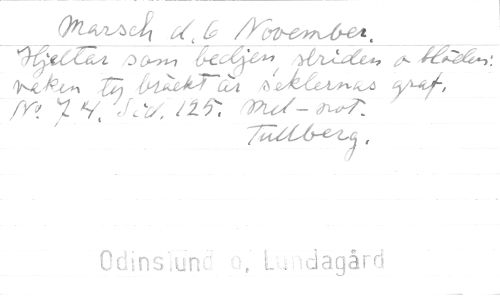 Marsch d. 6 November.
Hjeltar som bedjen, striden o blöden:
vaken ty bräckt är seklernas graf.
No 74. Sid. 125. Mel-not.
Tullberg.
Odinslund o, Lundagård